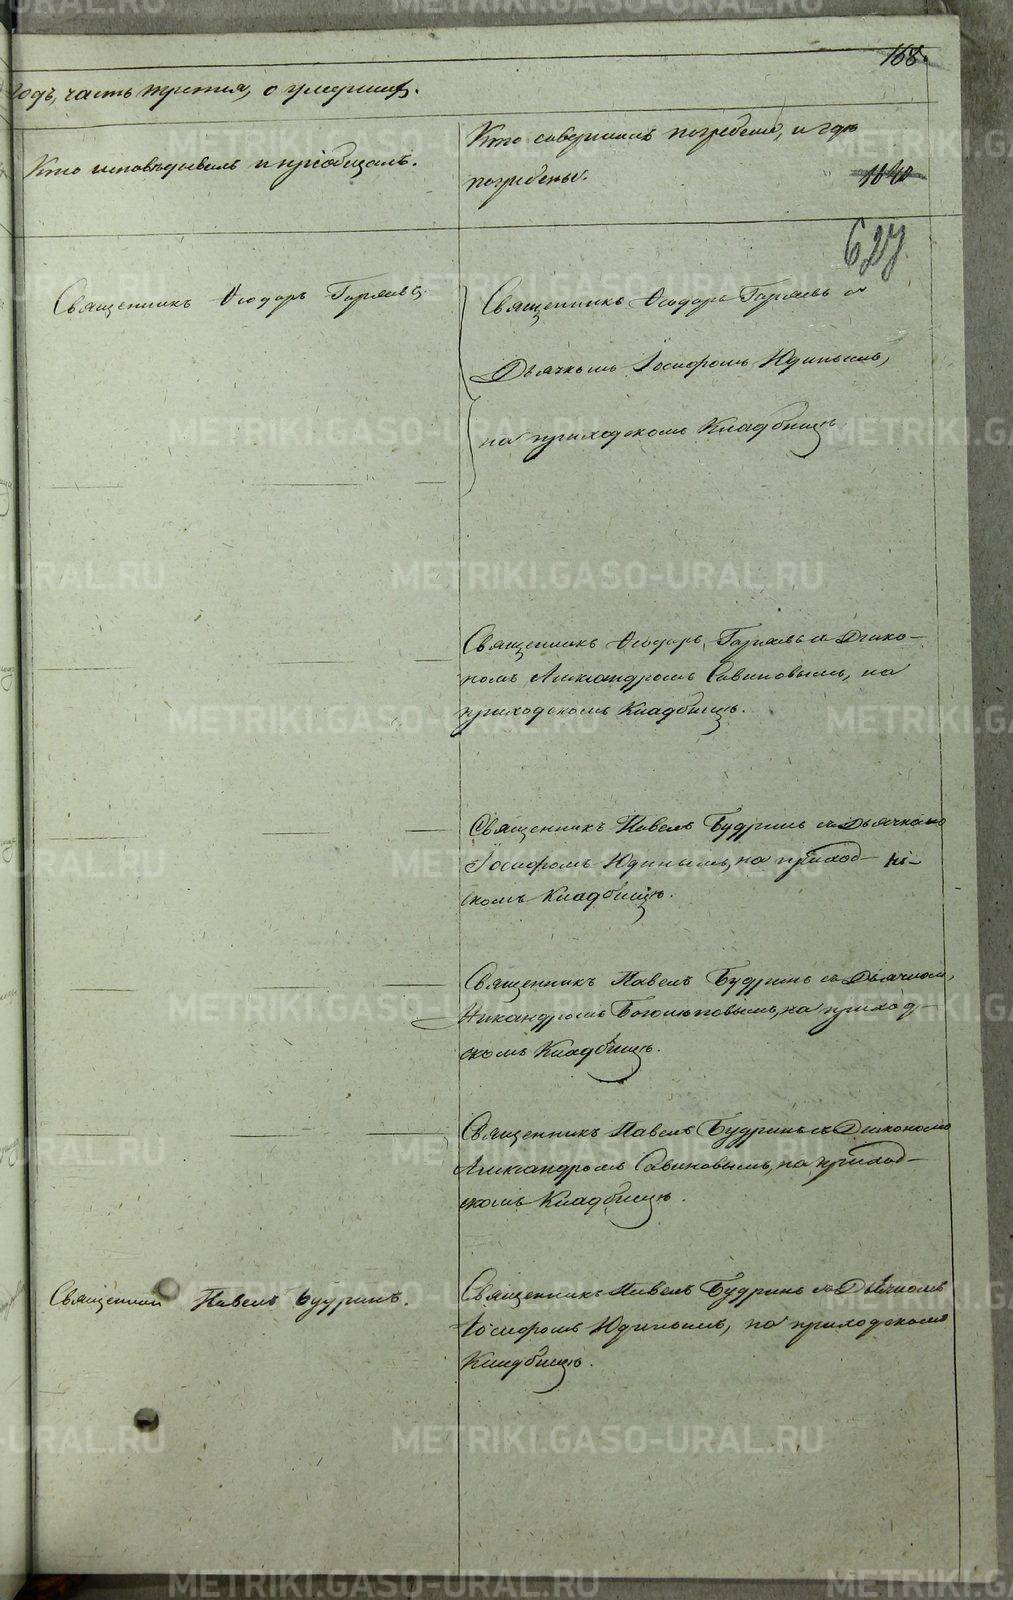 168.
годъ, часть третія, о умершихъ.
Кто исповѣдывалъ и пріобщалъ.
Кто совершалъ погребеніе, и гдѣ
погребены.
627
Священникъ Ѳеодоръ Гаряевъ.
Священникъ Ѳеодоръ Гаряевъ съ
Дьячкомъ Іосифомъ Юдинымъ,
на приходскомъ Кладбищѣ
Священникъ Ѳеодоръ Гаряевъ съ Діако-
номъ Александромъ Савиновымъ, на
приходскомъ Кладбищѣ.
Священникъ Павелъ Будринъ съ Дьячкомъ
Іосифомъ Юдинымъ, на приход-
скомъ Кладбищѣ.
Священникъ Павелъ Будринъ съ Дьячкомъ
Никандромъ Боголюповымъ, на приход-
скомъ Кладбищѣ.
Священникъ Павелъ Будринъ съ Діакономъ
Александромъ Савиновымъ, на приход-
скомъ Кладбищѣ.
Священникъ Павелъ Будринъ.
Священникъ Павелъ Будринъ съ Дьячкомъ
Іосифомъ Юдинымъ, на приходскомъ
Кладбищѣ.
METRIKI.GASO-URAL.RU